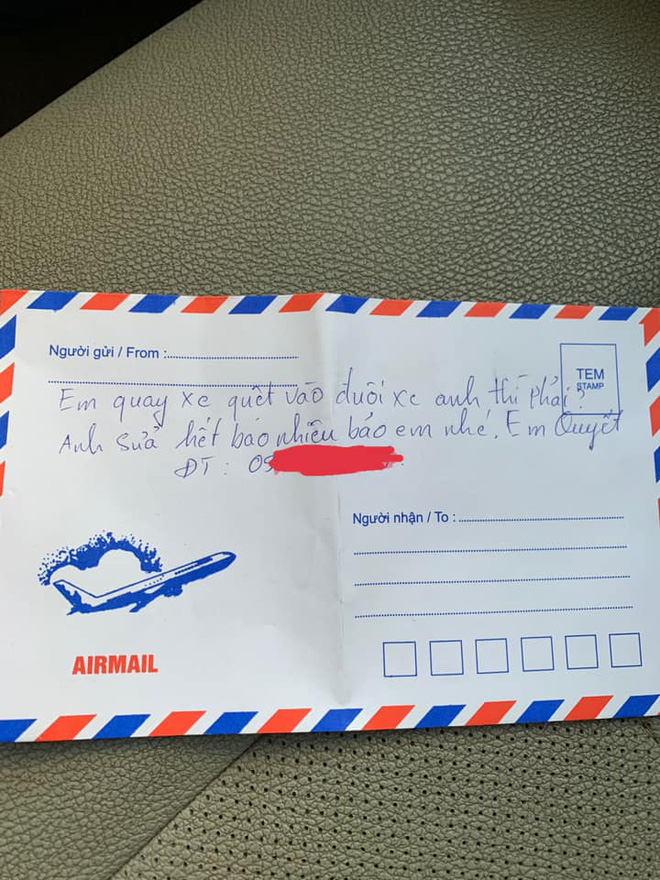 Người gửi / From :
TEM
STAMP
Em quay xe quệt vào đuôi xe anh thì phải?
Anh sửa hết bao nhiêu bảo em nhé, Em Quyết
ĐT : 09
Người nhận / To :
AIRMAIL